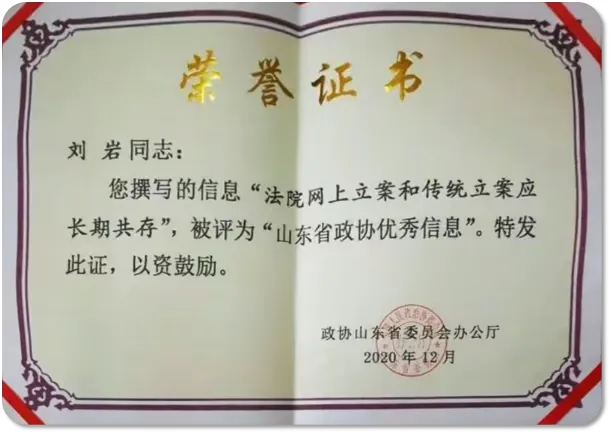 荣誉证书
刘 岩同志：
您撰写的信息“法院网上立案和传统立案应
长期共存”，被评为“山东省政协优秀信息”。特发
此证，以资鼓励。
政协山东省委员会办公厅
2020年12月